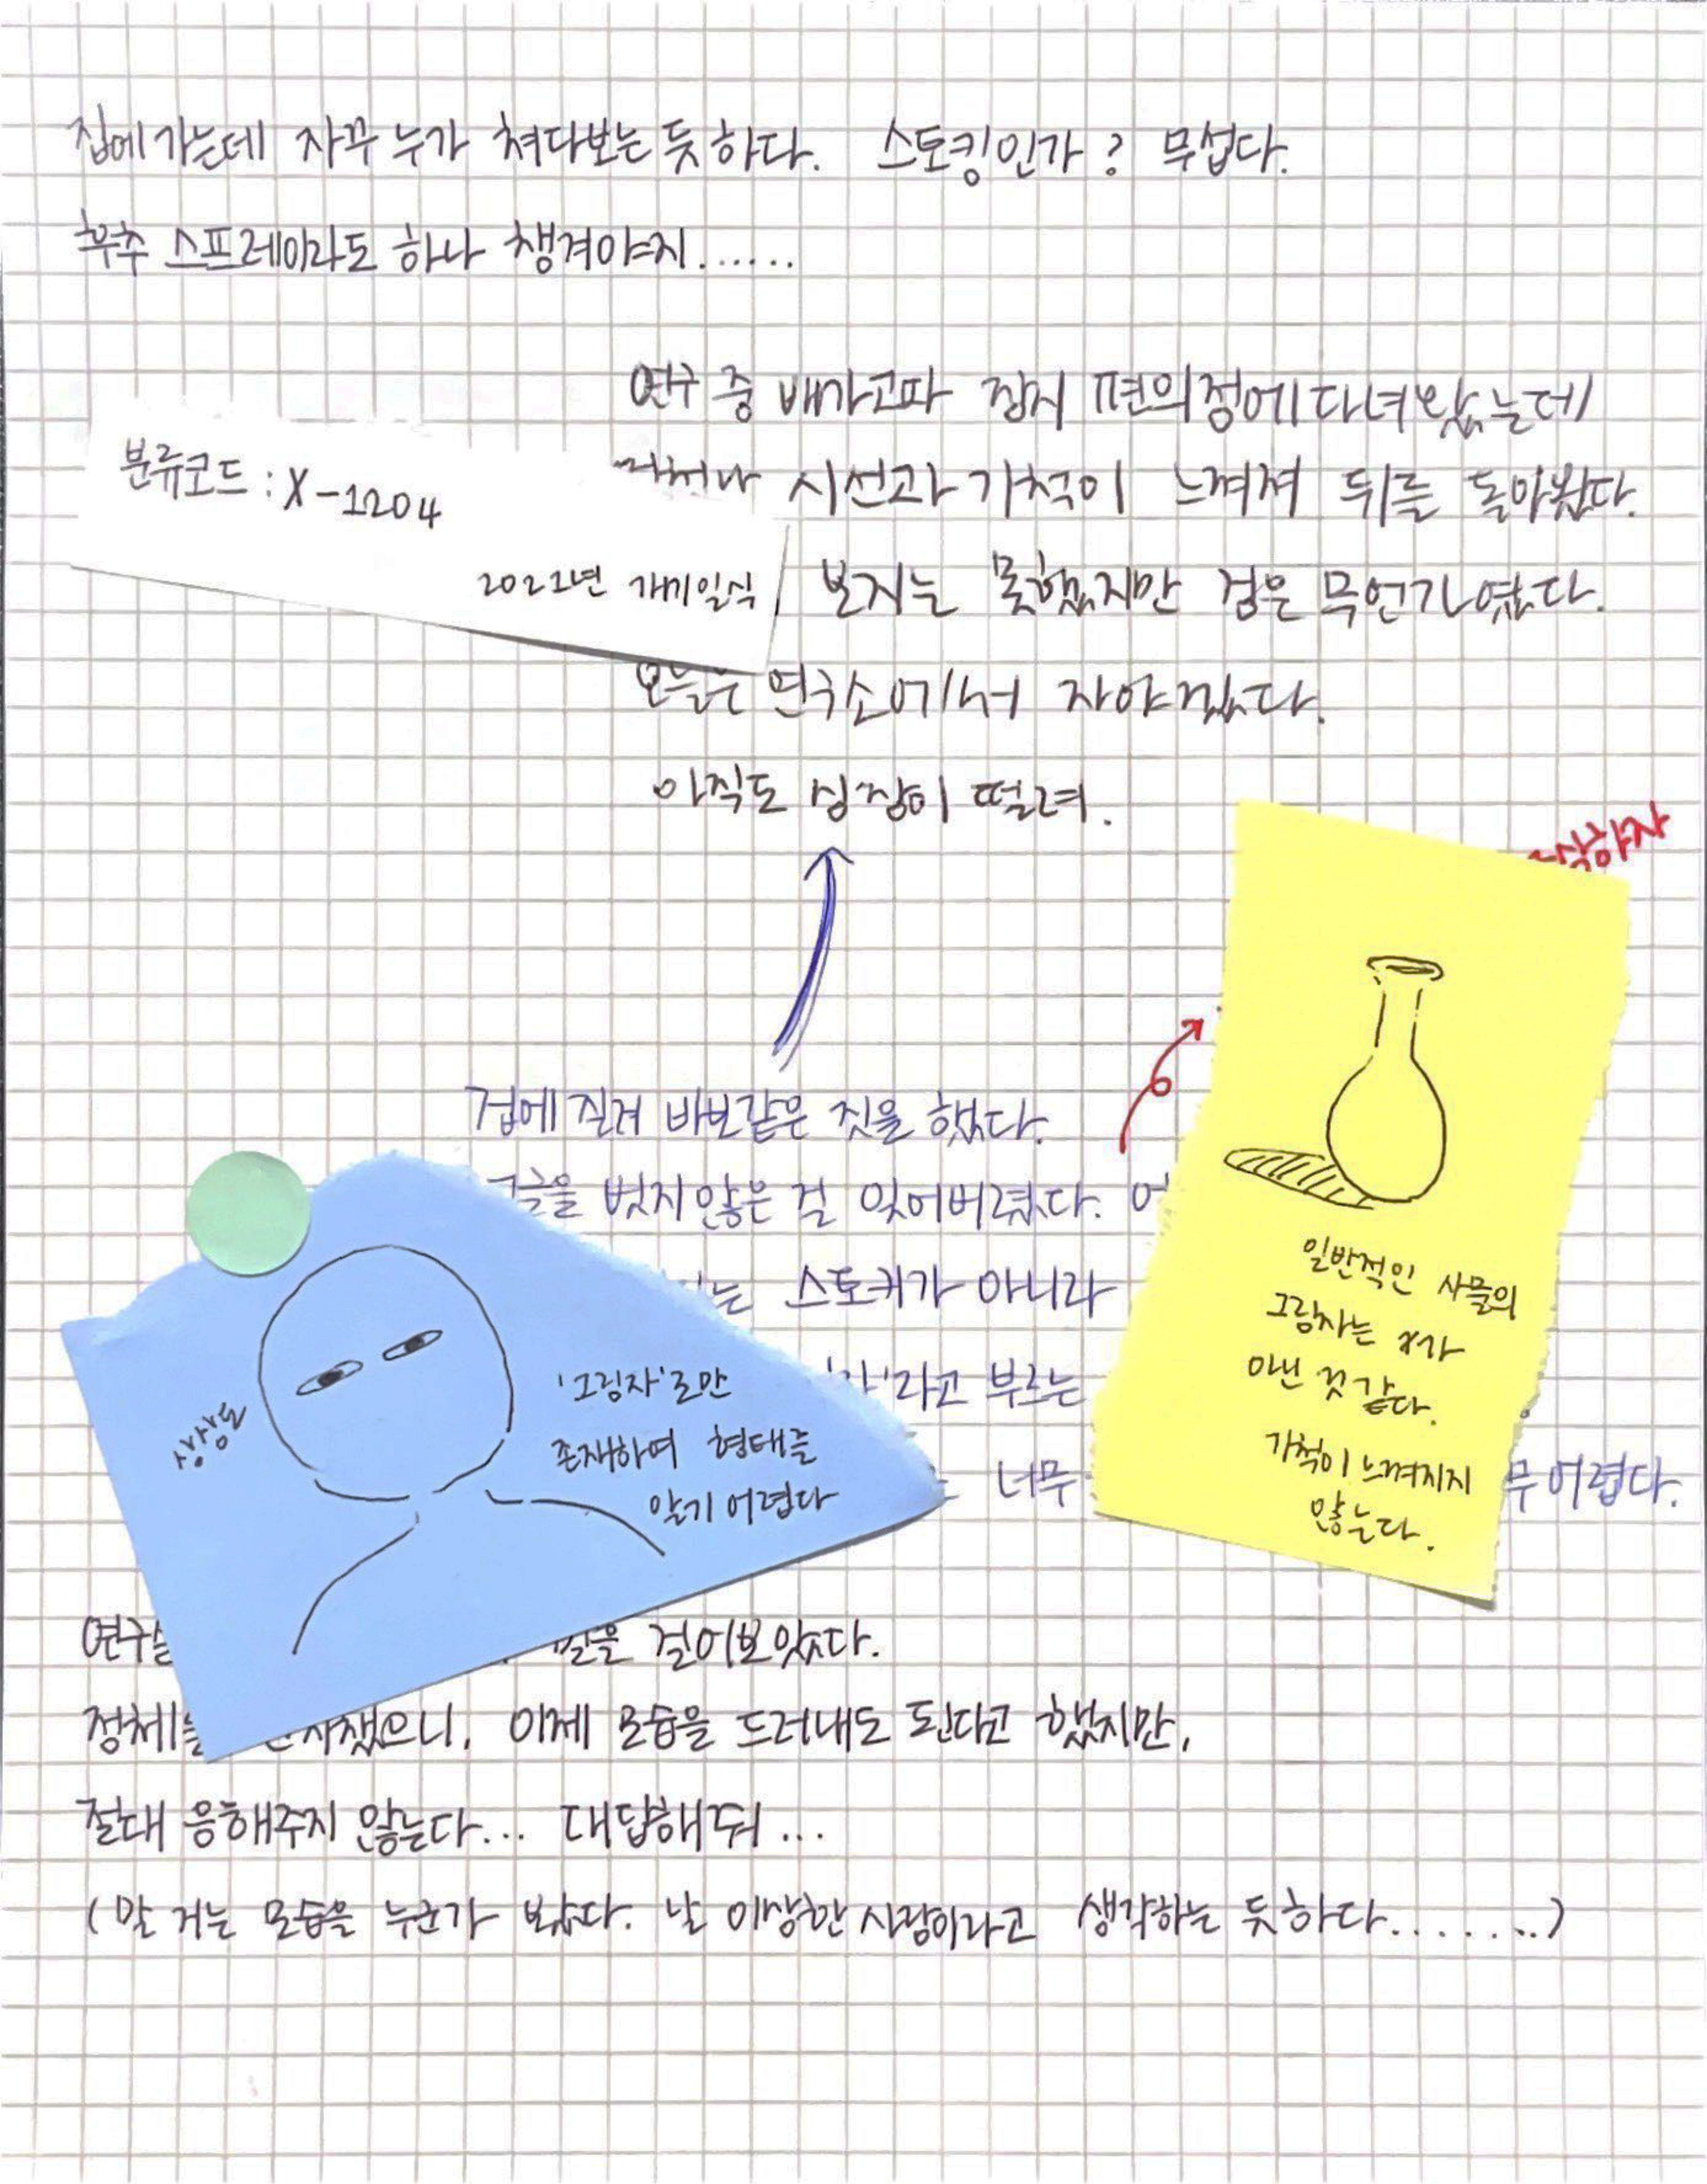 집에 가는데 자꾸 누가 쳐다보는 듯 하다. 스토킹인가? 무섭다.
후추 스프레이라도 하나 챙겨야지......
연구 중 배가고파 잠시 편의점에 다녀왔는데
시선과 기척이 느껴져 뒤를 돌아봤다.
분류코드 : X-1204
보지는 못했지만 검은 무언가였다.
오늘은 연구소에서 자야겠다.
아직도 심장이 떨려.
겁에 질려 바보같은 짓을 했다.
벗지 않은 걸 잊어버렸다.
는 스토커가 아니라
라고 부르는
너무
무 어렵다.
상상도
'그림자'로만
존재하여 형태를
알기 어렵다
일반적인 사물의
그림자는 X가
아닌 것 같다.
기척이 느껴지지
않는다.
걸어보았다.
이제 모습을 드러내도 된다고 했지만,
절대 응해주지 않는다... 대답해줘...
(말 거는 모습을 누군가 봤다. 날 이상한 사람이라고 생각하는 듯 하다.......)